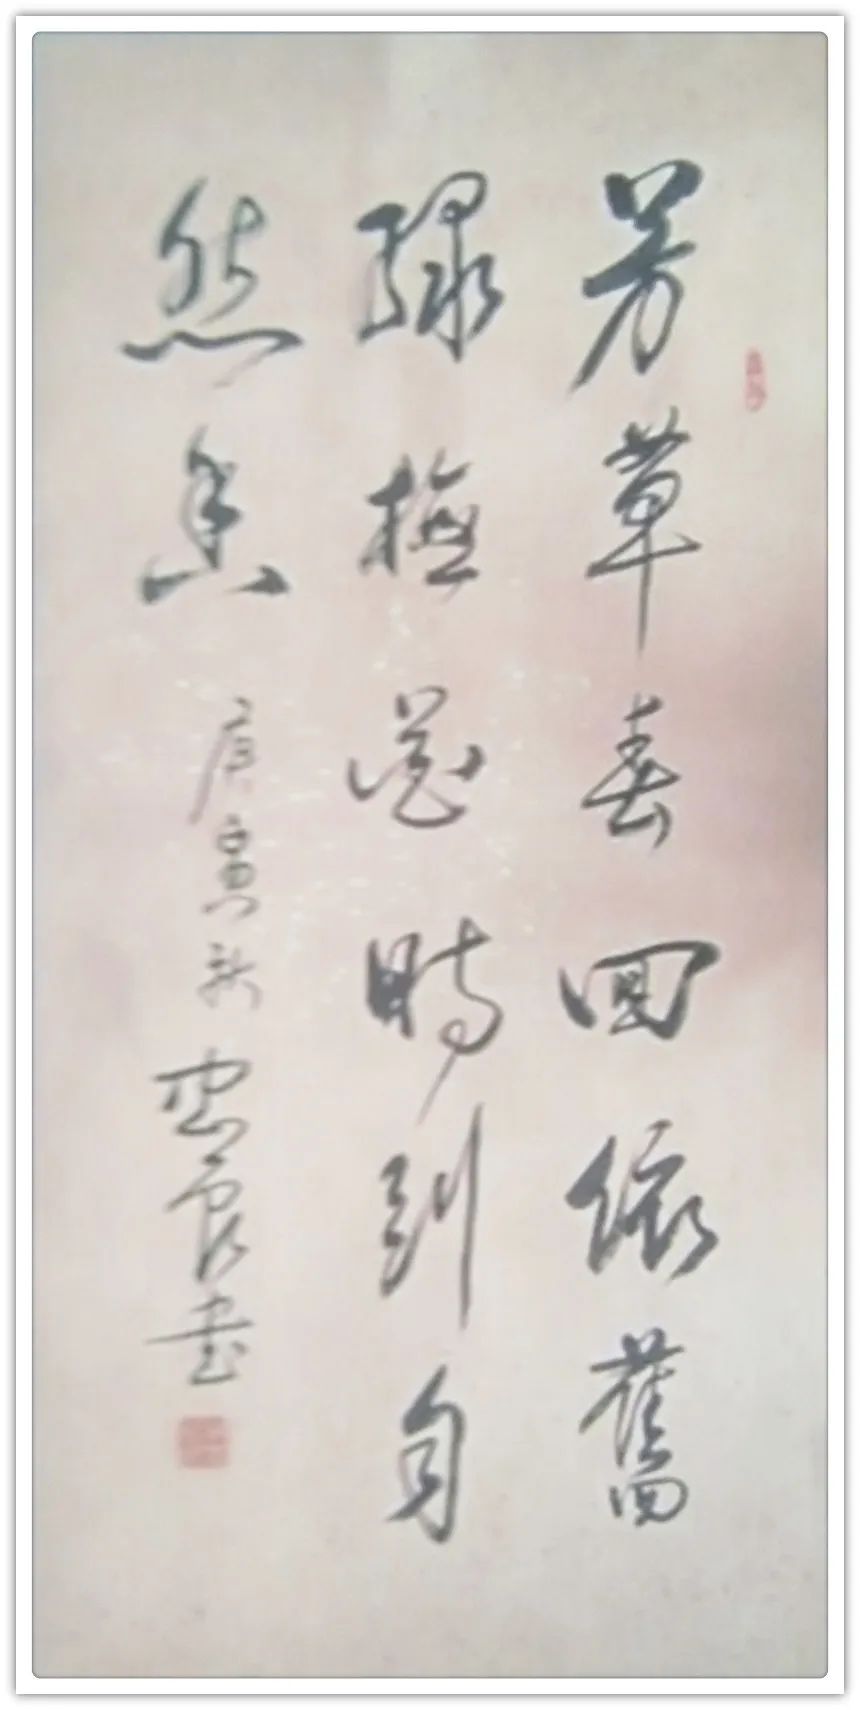 芳草春回依舊
緑梅花時到自
然香 庚寅新忠良書